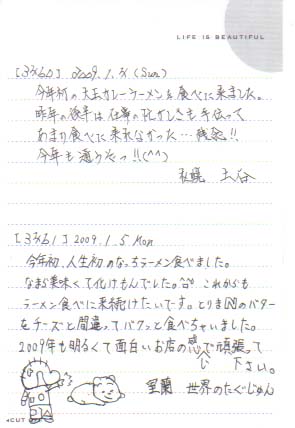 LIFE IS BEAUTIFUL
[3360] 2009.1.4 (Sun)
今年初の大王カレーラーメンを食べに来ました。
昨年の後半は仕事の忙しさも手伝って
あまり食べに来れなかった…残念!!
今年も通うぞっ!!(^^)
札幌 大谷
[3361] 2009.1.5 Mon
今年初、人生初のなっちラーメン食べました。
なまら美味くて化けもんでした。これからも
ラーメン食べに来続けたいです。とりまのバター
をチーズと間違ってパクッと食べちゃいました。
2009年も明るくて面白いお店の感じで頑張って
下さい。
室蘭 世界のたぐじゅん
◀CUT